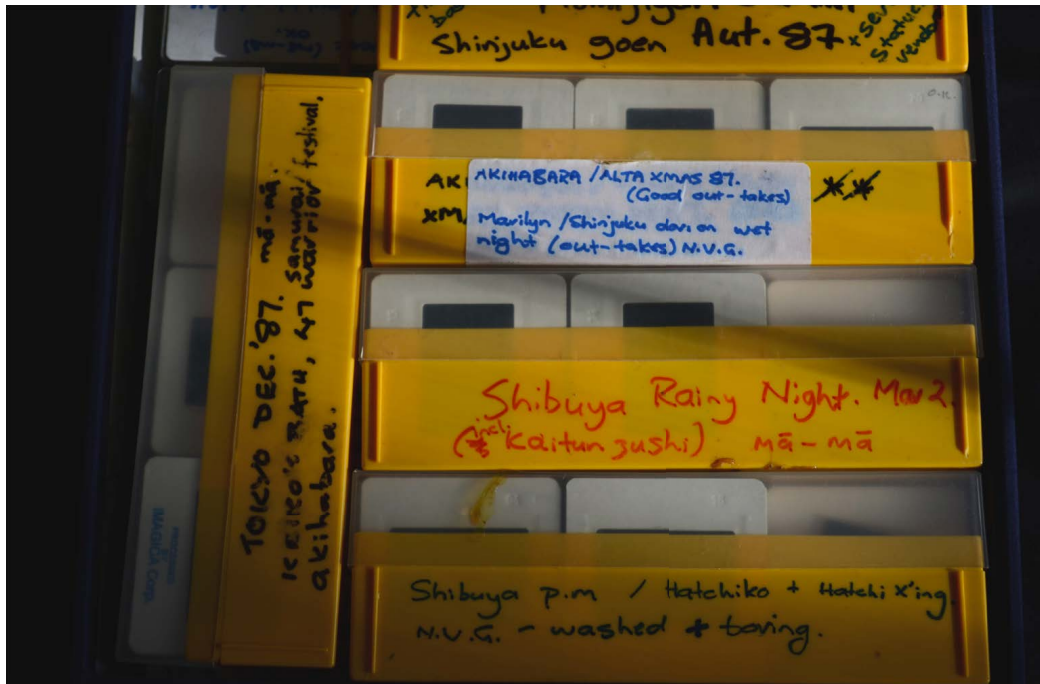 Shinjuku goen Aut. 87
TOKYO DEC. '87. mā-mā.
KEIKO'S BATH, 47 samurai warrior festival,
akihabara.
IMAGICA Corp.
AKI
XM
AKIHABARA / ALTA XMAS 87.
(Good out-takes)
Marilyn / Shinjuku on wet
night (out-takes) N.V.G.
Shibuya Rainy Night. Mar 2.
(incl. Kaitun zushi) mā-mā
Shibuya p.m / Hatchiko + Hatchi x'ing.
N.V.G. - washed + boring.